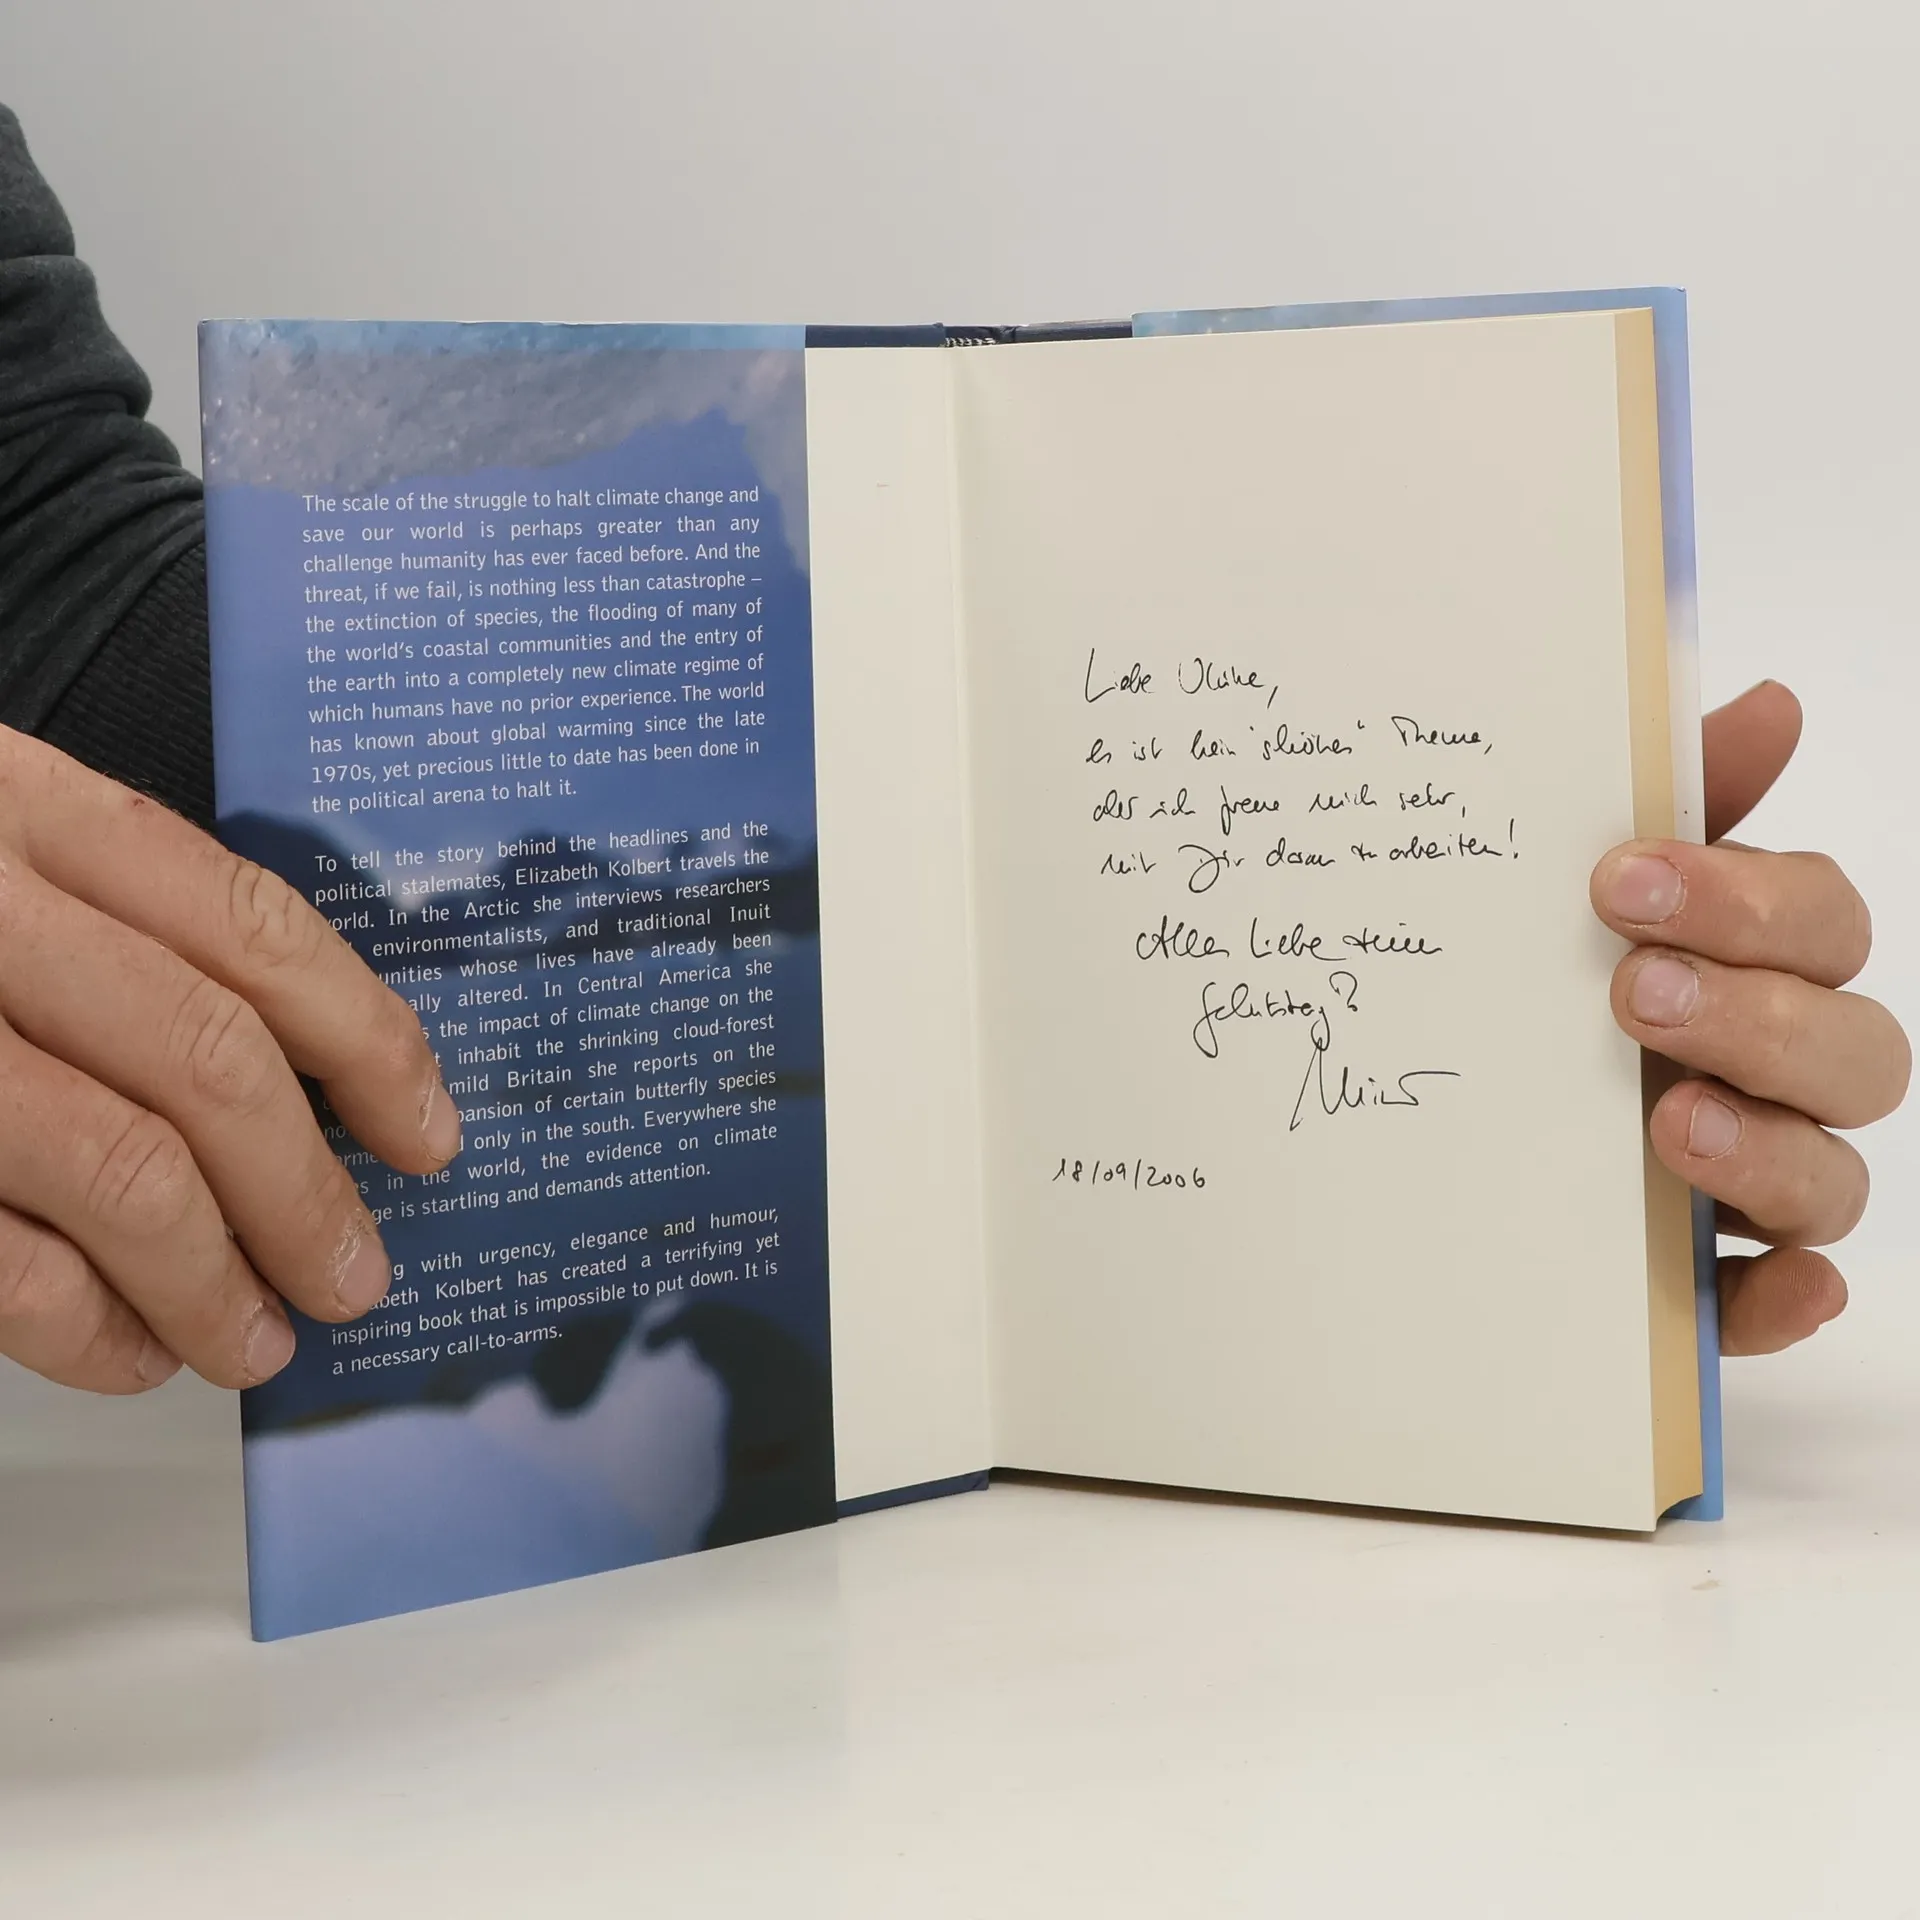 The scale of the struggle to halt climate change and
save our world is perhaps greater than any
challenge humanity has ever faced before. And the
threat, if we fail, is nothing less than catastrophe –
the extinction of species, the flooding of many of
the world's coastal communities and the entry of
the earth into a completely new climate regime of
which humans have no prior experience. The world
has known about global warming since the late
1970s, yet precious little to date has been done in
the political arena to halt it.
To tell the story behind the headlines and the
political stalemates, Elizabeth Kolbert travels the
orld. In the Arctic she interviews researchers
environmentalists, and traditional Inuit
unities whose lives have already been
ally altered. In Central America she
s the impact of climate change on the
t inhabit the shrinking cloud-forest
mild Britain she reports on the
pansion of certain butterfly species
only in the south. Everywhere she
s in the world, the evidence on climate
ge is startling and demands attention.
g with urgency, elegance and humour,
abeth Kolbert has created a terrifying yet
inspiring book that is impossible to put down. It is
a necessary call-to-arms.
Liebe Ulrike,
es ist kein "schönes" Thema,
aber ich freue mich sehr,
mit Dir daran zu arbeiten!
Alles Liebe zum
Geburtstag!
18/09/2006